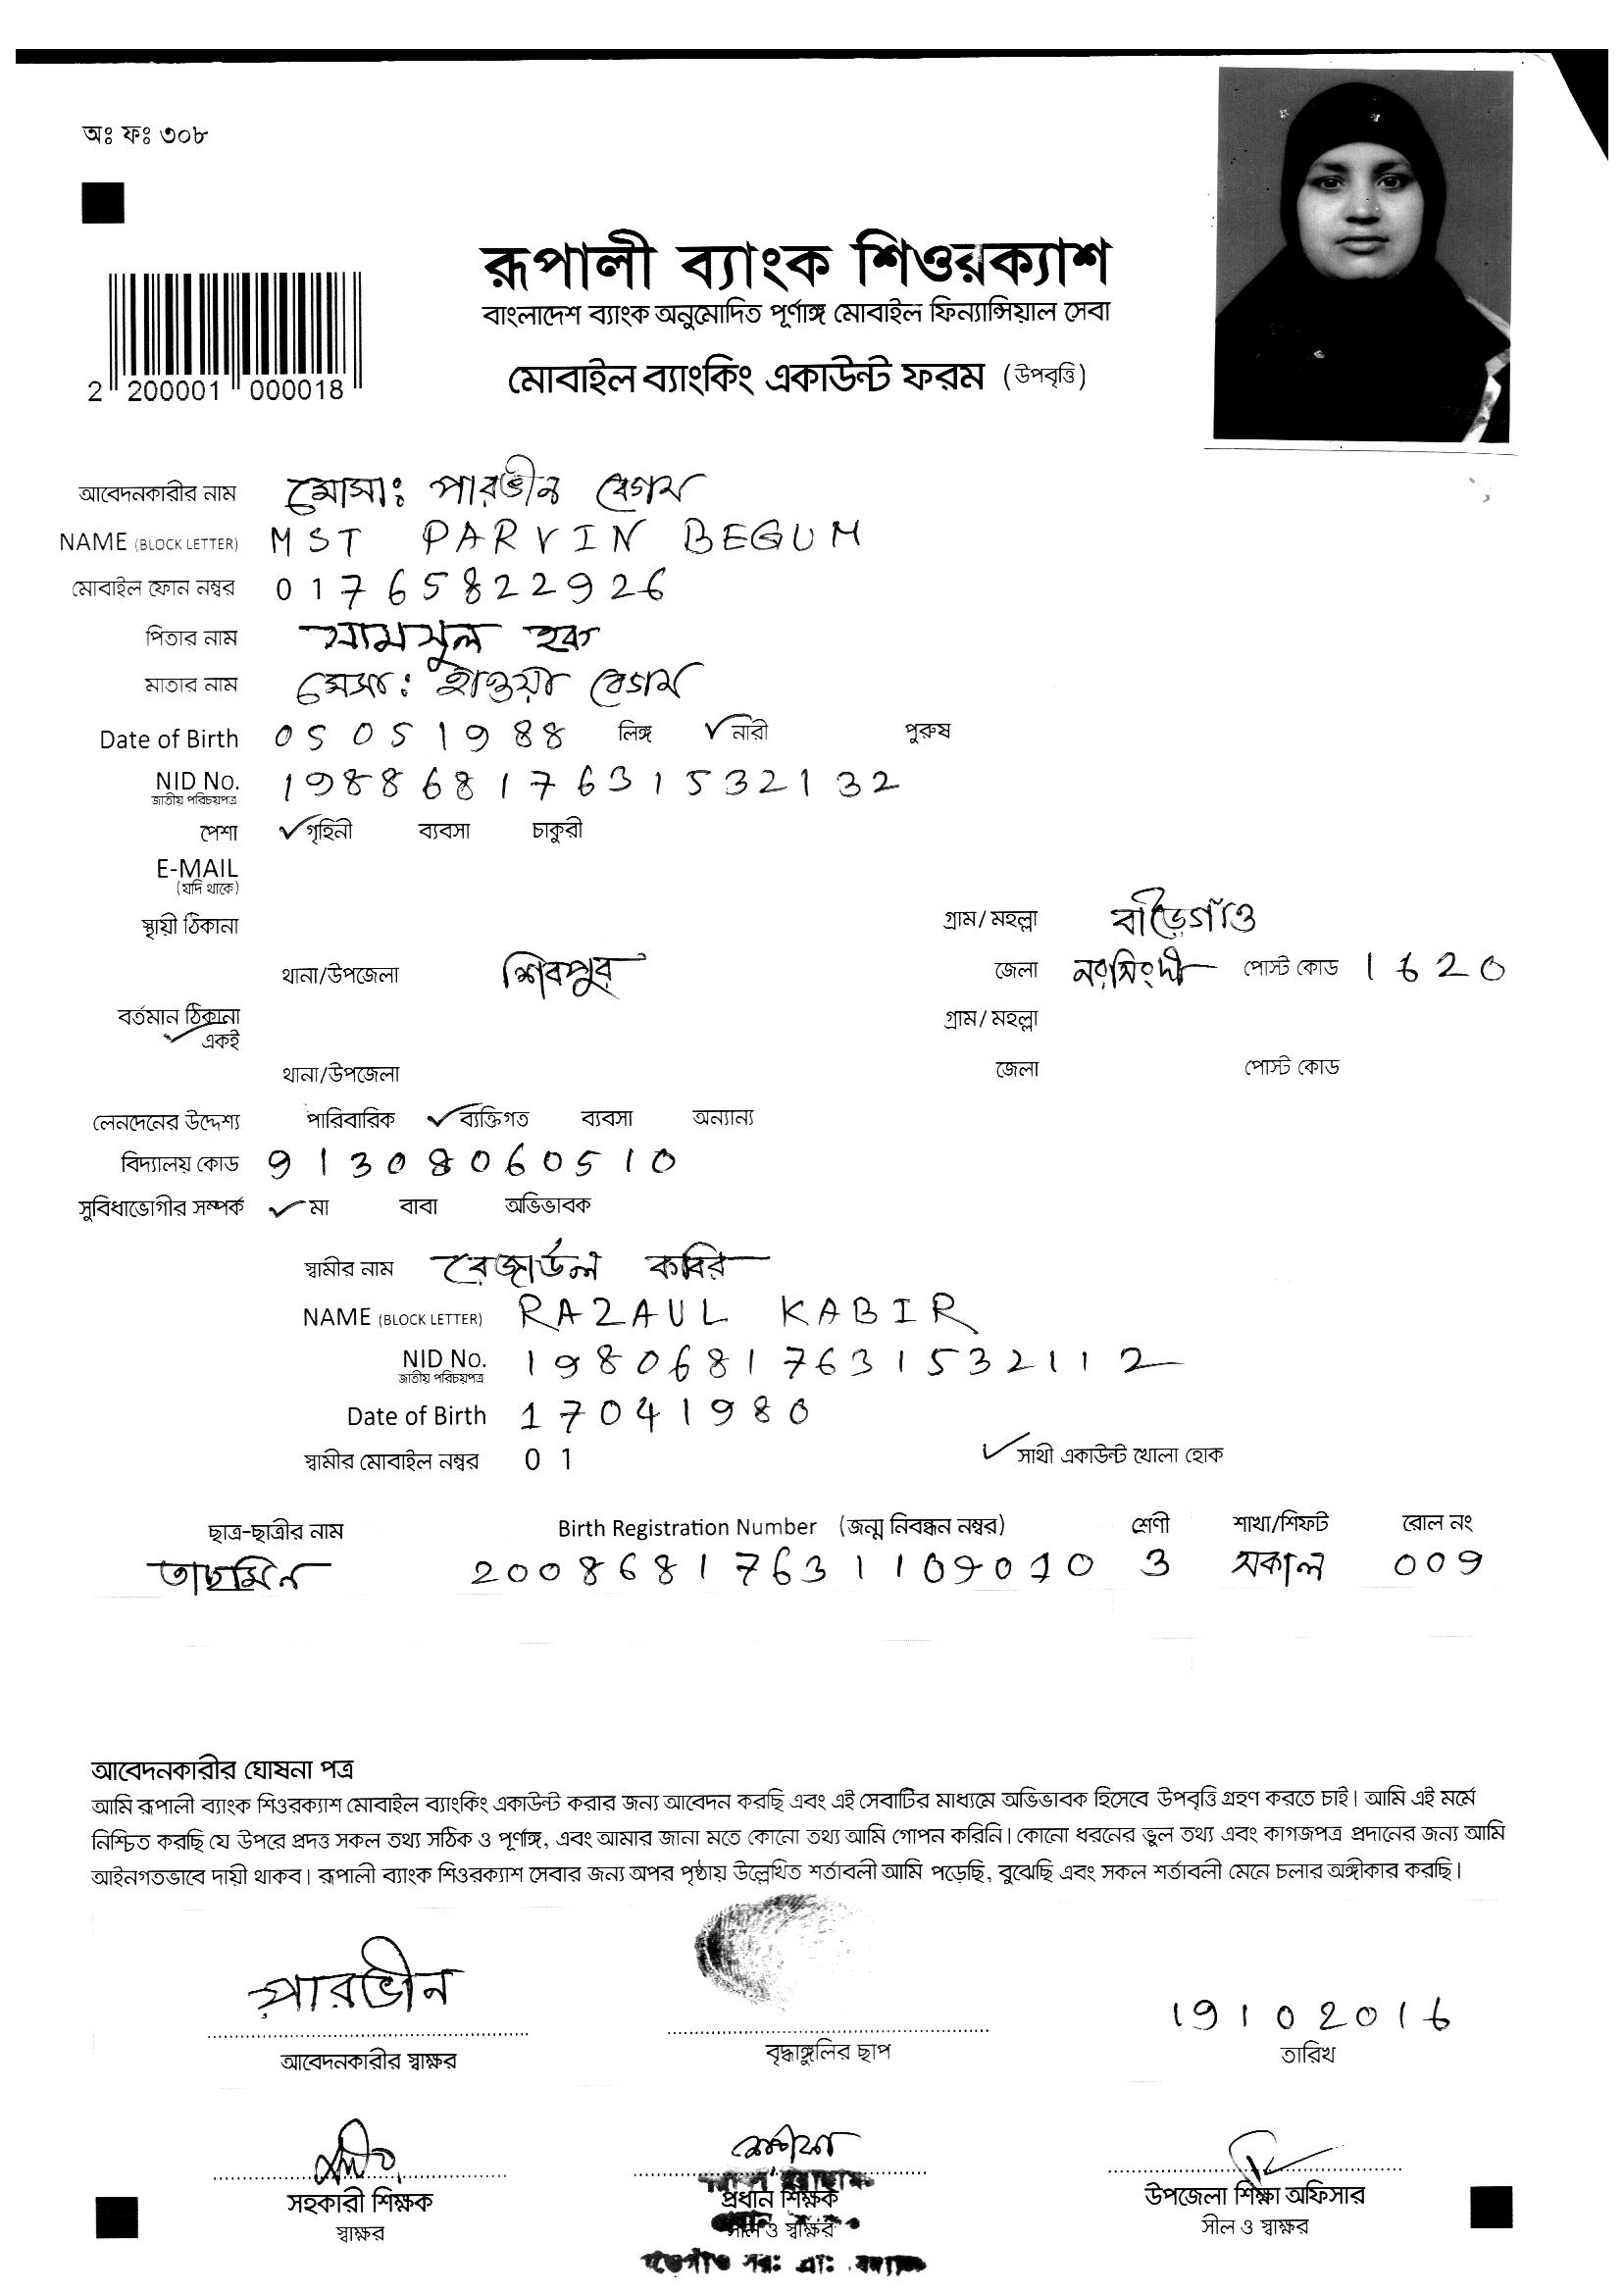 অঃ ফঃ ৩০৮
রূপালী ব্যাংক শিওরক্যাশ
বাংলাদেশ ব্যাংক অনুমোদিত পূর্ণাঙ্গ মোবাইল ফিন্যান্সিয়াল সেবা
মোবাইল ব্যাংকিং একাউন্ট ফরম (উপবৃত্তি)
2 200001 000018
আবেদনকারীর নাম মোসাঃ পারভীন বেগম
NAME (BLOCK LETTER) MST PARVIN BEGUM
মোবাইল ফোন নম্বর 01765822926
পিতার নাম সামসুল হক
মাতার নাম মোসাঃ হাওয়া বেগম
Date of Birth 05051988 লিঙ্গ ✓ নারী পুরুষ
NID No. 19886817631532132
জাতীয় পরিচয়পত্র
পেশা ✓ গৃহিনী ব্যবসা চাকুরী
E-MAIL
(যদি থাকে)
স্থায়ী ঠিকানা গ্রাম/ মহল্লা বাড়ৈগাঁও
থানা/উপজেলা শিবপুর জেলা নরসিংদী পোস্ট কোড 1620
বর্তমান ঠিকানা গ্রাম/ মহল্লা
✓ একই
থানা/উপজেলা জেলা পোস্ট কোড
লেনদেনের উদ্দেশ্য পারিবারিক ✓ ব্যক্তিগত ব্যবসা অন্যান্য
বিদ্যালয় কোড 91308060510
সুবিধাভোগীর সম্পর্ক ✓ মা বাবা অভিভাবক
স্বামীর নাম রেজাউল কবির
NAME (BLOCK LETTER) RAZAUL KABIR
NID No. 19806817631532112
জাতীয় পরিচয়পত্র
Date of Birth 17041980
স্বামীর মোবাইল নম্বর 01 ✓ সাথী একাউন্ট খোলা হোক
ছাত্র-ছাত্রীর নাম Birth Registration Number (জন্ম নিবন্ধন নম্বর) শ্রেণী শাখা/শিফট রোল নং
তাছমিন 20086817631109010 3 সকাল 009
আবেদনকারীর ঘোষনা পত্র
আমি রূপালী ব্যাংক শিওরক্যাশ মোবাইল ব্যাংকিং একাউন্ট করার জন্য আবেদন করছি এবং এই সেবাটির মাধ্যমে অভিভাবক হিসেবে উপবৃত্তি গ্রহণ করতে চাই। আমি এই মর্মে
নিশ্চিত করছি যে উপরে প্রদত্ত সকল তথ্য সঠিক ও পূর্ণাঙ্গ, এবং আমার জানা মতে কোনো তথ্য আমি গোপন করিনি। কোনো ধরনের ভুল তথ্য এবং কাগজপত্র প্রদানের জন্য আমি
আইনগতভাবে দায়ী থাকব। রূপালী ব্যাংক শিওরক্যাশ সেবার জন্য অপর পৃষ্ঠায় উল্লেখিত শর্তাবলী আমি পড়েছি, বুঝেছি এবং সকল শর্তাবলী মেনে চলার অঙ্গীকার করছি।
পারভীন 19102016
আবেদনকারীর স্বাক্ষর বৃদ্ধাঙ্গুলির ছাপ তারিখ
সহকারী শিক্ষক প্রধান শিক্ষক উপজেলা শিক্ষা অফিসার
স্বাক্ষর সীল ও স্বাক্ষর সীল ও স্বাক্ষর